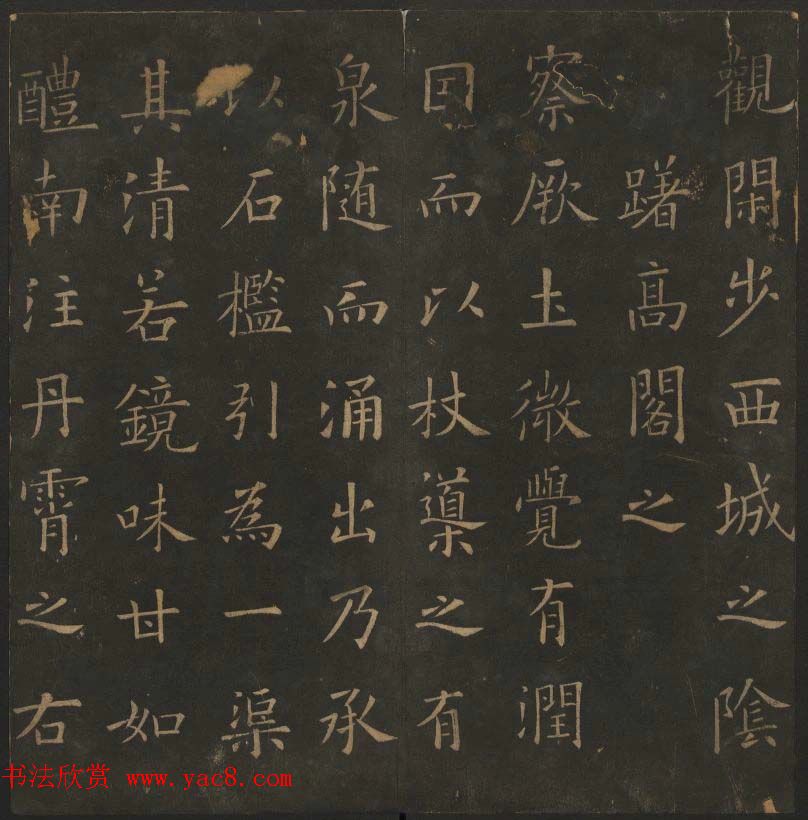 觀閑步西城之陰
躇高閣之
察厥土微覺有潤
因而以杖導之有
泉随而涌出乃承
以石檻引為一渠
其清若鏡味甘如
醴南注丹霄之右
书法欣赏 www.yac8.com